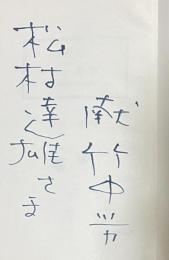 献竹中労
松村達雄さま